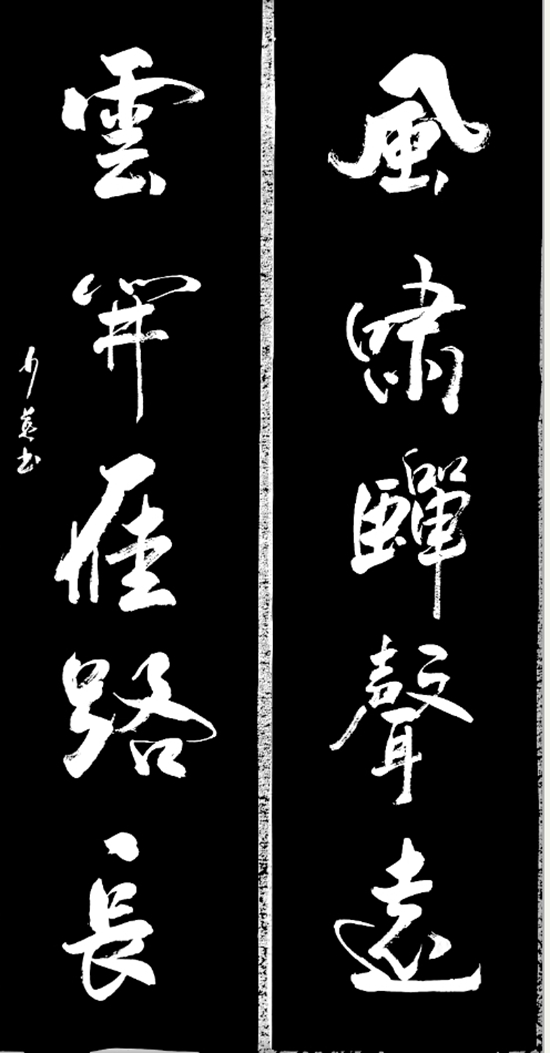 風嘯蟬聲遠
雲開雁路長
少書